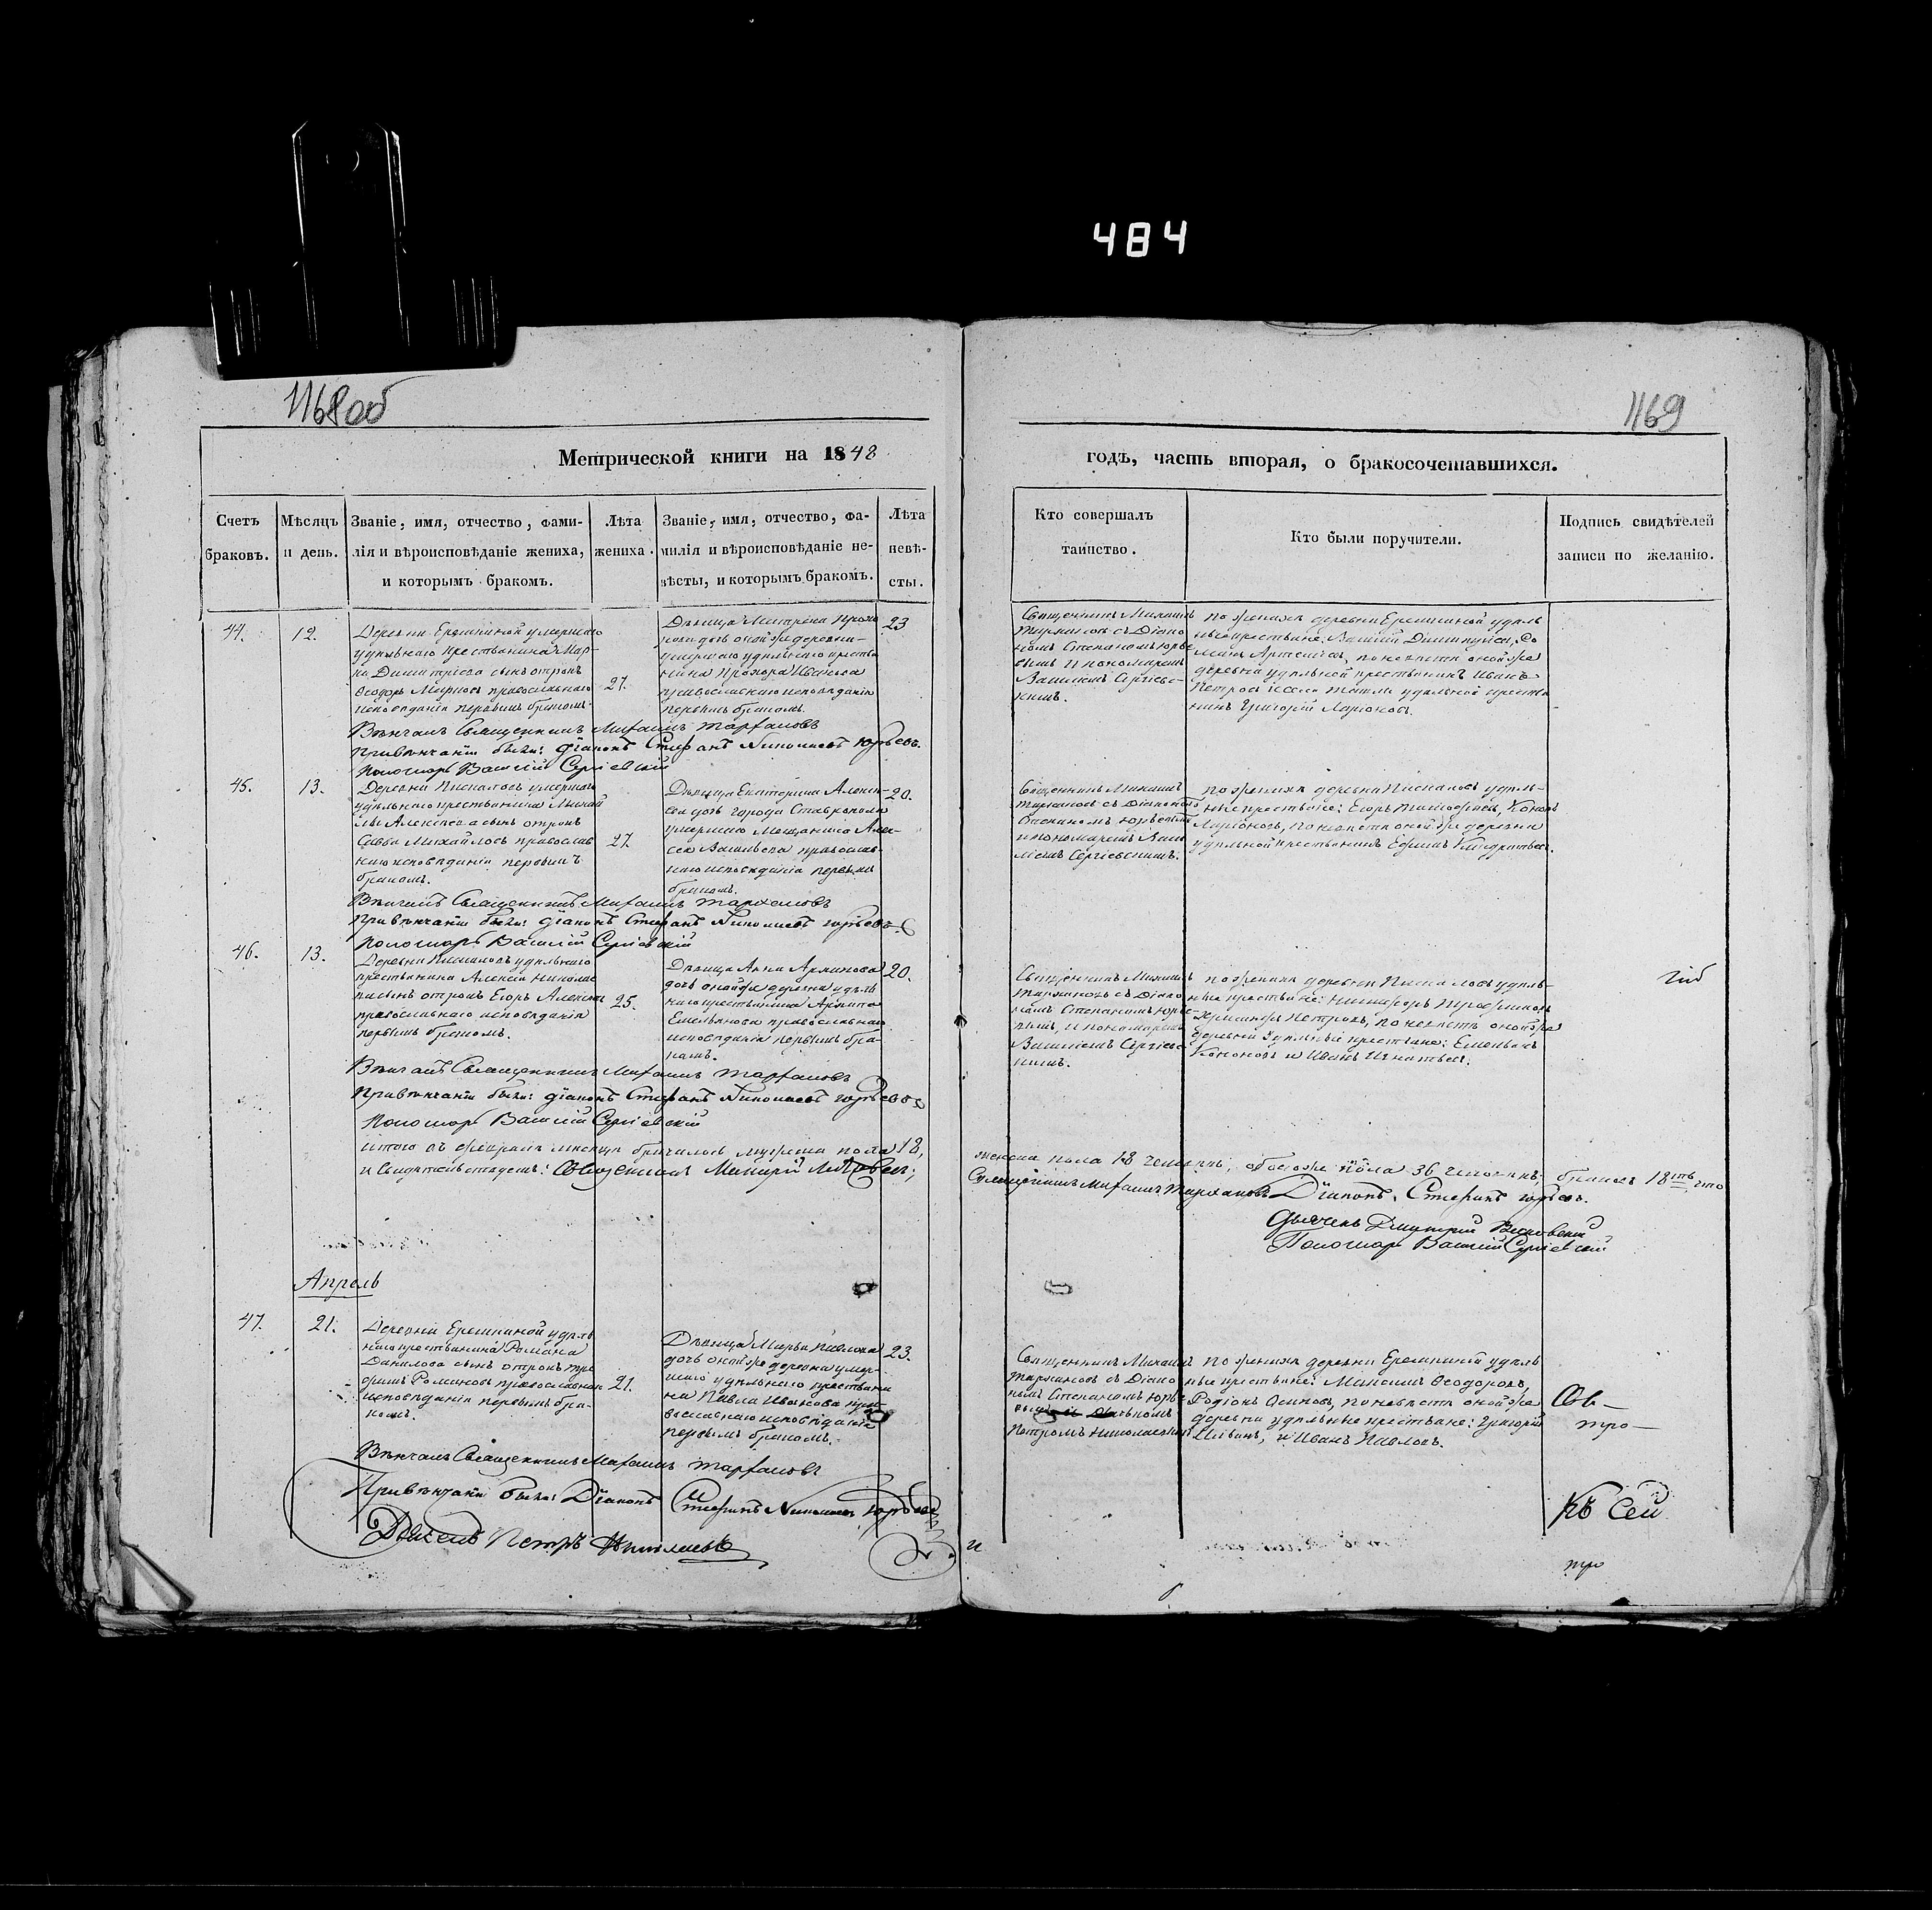 484
1168об
1169
Метрической книги на 1848
годъ, часть вторая, о бракосочетавшихся.
Счетъ браковъ.
Мѣсяцъ и день.
Званіе, имя, отчество, фами-
лія и вѣроисповѣданіе жениха,
и которымъ бракомъ.
Лѣта жениха.
Званіе, имя, отчество, фа-
милія и вѣроисповѣданіе не-
вѣсты, и которымъ бракомъ.
Лѣта невѣ-
сты.
Кто совершалъ
таинство.
Кто были поручители.
Подпись свидѣтелей
записи по желанію.
44.
12.
Деревни Еремкиной умершаго
удѣльнаго крестьянина Мар-
Димитріева сынъ отрокъ
Ѳеодоръ православнаго
исповѣданія первымъ бракомъ.
27.
Дѣвица Матрена Прохо
рова дочь оной же деревни
умершаго удѣльнаго крестья
нина Прохора Иванова
православнаго исповѣданія
первымъ бракомъ.
23
Священникъ Михаилъ
Тархановъ съ Діако
номъ Степаномъ Юрье
вымъ и пономаремъ
Василіемъ Сергіевс-
кимъ.
по женихѣ деревни Еремкиной удѣль
ные крестьяне: Василій
Артемьевъ, по невѣстѣ оной же
деревни удѣльной крестьянинъ Иванъ
Петровъ и села удѣльной крестья
нинъ Григорій Ларіоновъ.
Вѣнчалъ Священникъ Михаилъ Тархановъ
При вѣнчаніи были: Діаконъ Стефанъ Николаевъ Юрьевъ.
Пономарь Василій Сергіевскій
45.
13.
Деревни умершаго
удѣльнаго крестьянина Михай
лы Алексѣева сынъ отрокъ
Савва Михайловъ православ
наго исповѣданія первымъ
бракомъ.
27.
Дѣвица Екатерина Алексѣ-
ева дочь города Ставрополя
умершаго Мещанина Алек-
сея Васильева православ-
наго исповѣданія первымъ
бракомъ.
20.
Священникъ Михаилъ
Тархановъ съ Діакономъ
Степаномъ Юрьевымъ
и пономаремъ Васи
ліемъ Сергіевскимъ.
по женихѣ деревни удѣль-
ные крестьяне: Егоръ Тимофеевъ,
Ларіоновъ, по невѣстѣ оной же деревни
удѣльной крестьянинъ Ефимъ Кондратьевъ.
Вѣнчалъ Священникъ Михаилъ Тархановъ
При вѣнчаніи были: Діаконъ Стефанъ Николаевъ Юрьевъ
Пономарь Василій Сергіевскій
46.
13.
Деревни удѣльнаго
крестьянина Алексѣя Николае
ва сынъ отрокъ Егоръ Алексѣевъ
православнаго исповѣданія
первымъ бракомъ.
25.
Дѣвица Анна Архипова
дочь оной же деревни удѣль
наго крестьянина Архипа
Емельянова православнаго
исповѣданія первымъ бра-
комъ.
20.
Священникъ Михаилъ
Тархановъ съ Діако
номъ Степаномъ Юрье-
вымъ, и пономаремъ
Василіемъ Сергіевс
кимъ.
по женихѣ деревни удѣль-
ные крестьяне: Никифоръ Трофимовъ
Петровъ, по невѣстѣ оной же
деревни удѣльные крестьяне: Емельянъ
Кононовъ и Иванъ Игнатьевъ.
Вѣнчалъ Священникъ Михаилъ Тархановъ
При вѣнчаніи были: Діаконъ Стефанъ Николаевъ Юрьевъ
Пономарь Василій Сергіевскій
Итого въ февралѣ мѣсяцѣ бракомъ мужеска пола 18,
женска пола 18 человѣкъ, обоего же пола 36 человѣкъ, браковъ 18ть, что
и свидѣтельствуемъ: Священникъ
Священникъ Михаилъ Тархановъ Діаконъ Стефанъ Юрьевъ.
Дьячекъ Димитрий
Пономарь Василій Сергіевскій
Апрель
47.
21.
Деревни Еремкиной удѣль
наго крестьянина Романа
Данилова сынъ отрокъ Тро
фимъ Романовъ православнаго
исповѣданія первымъ бра-
комъ.
21.
Дѣвица Марья Павлова
дочь оной же деревни умер-
шаго удѣльнаго крестьяни
на Павла Иванова пра-
вославнаго исповѣданія
первымъ бракомъ.
23.
Священникъ Михаилъ
Тархановъ съ Діако
номъ Степаномъ Юрье-
вымъ и Дьячкомъ
Петромъ Николаевымъ
по женихѣ деревни Еремкиной удѣль
ные крестьяне: Максимъ Ѳеодоровъ,
Родіонъ Осиповъ, по невѣстѣ оной же
деревни удѣльные крестьяне: Григорій
и Иванъ Павловъ.
Вѣнчалъ Священникъ Михаилъ Тархановъ
При вѣнчаніи были: Діаконъ Стефанъ Николаевъ Юрьевъ
Дьячекъ Петръ Николаевъ
и
Къ сей